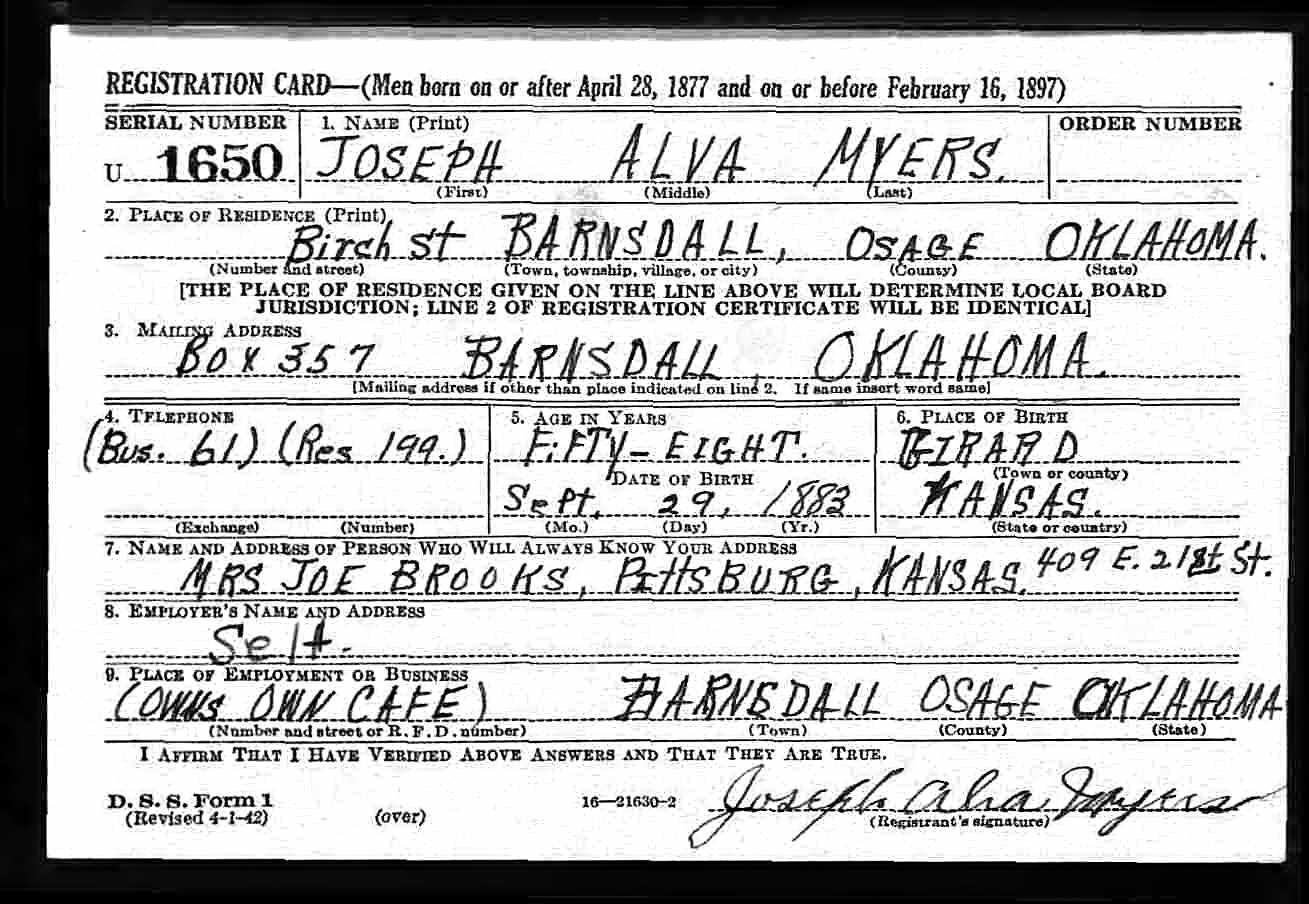 REGISTRATION CARD—(Men born on or after April 28, 1877 and on or before February 16, 1897)
SERIAL NUMBER 1. NAME (Print) ORDER NUMBER
U 1650 JOSEPH ALVA MYERS.
(First) (Middle) (Last)
2. PLACE OF RESIDENCE (Print)
Birch St BARNSDALL, OSAGE OKLAHOMA.
(Number and street) (Town, township, village, or city) (County) (State)
[THE PLACE OF RESIDENCE GIVEN ON THE LINE ABOVE WILL DETERMINE LOCAL BOARD
JURISDICTION; LINE 2 OF REGISTRATION CERTIFICATE WILL BE IDENTICAL]
3. MAILING ADDRESS
BOX 357 BARNSDALL OKLAHOMA.
[Mailing address if other than place indicated on line 2. If same insert word same]
4. TELEPHONE 5. AGE IN YEARS 6. PLACE OF BIRTH
(Bus. 61) (Res 199.) FIFTY-EIGHT. GIRARD
DATE OF BIRTH (Town or county)
Sept. 29, 1883 KANSAS.
(Exchange) (Number) (Mo.) (Day) (Yr.) (State or country)
7. NAME AND ADDRESS OF PERSON WHO WILL ALWAYS KNOW YOUR ADDRESS
MRS JOE BROOKS, PITTSBURG, KANSAS. 409 E. 21st St.
8. EMPLOYER'S NAME AND ADDRESS
Self.
9. PLACE OF EMPLOYMENT OR BUSINESS
(OWNS OWN CAFE) BARNSDALL OSAGE OKLAHOMA
(Number and street or R. F. D. number) (Town) (County) (State)
I AFFIRM THAT I HAVE VERIFIED ABOVE ANSWERS AND THAT THEY ARE TRUE.
D. S. S. Form 1
(Revised 4-1-42) (over) 16—21630-2 Joseph Alva Myers
(Registrant's signature)